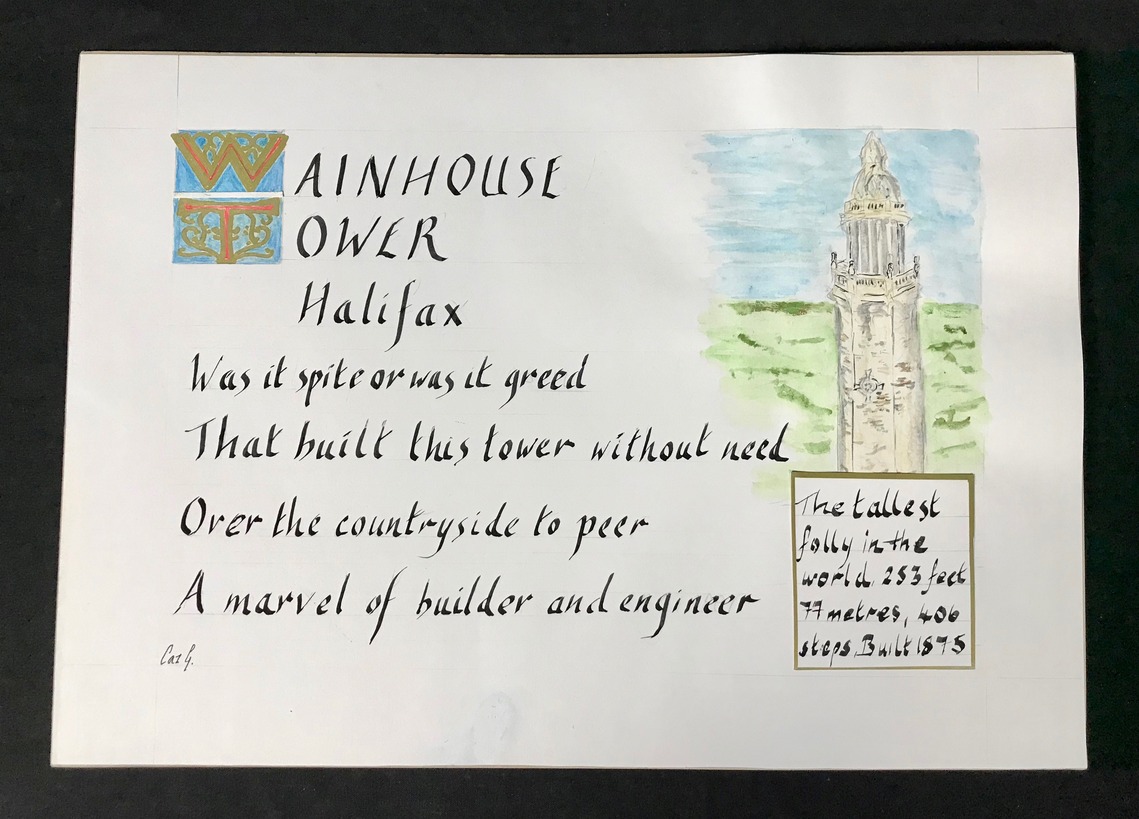 WAINHOUSE
TOWER
Halifax
Was it spite or was it greed
That built this tower without need
Over the countryside to peer
A marvel of builder and engineer
Caz G.
The tallest
folly in the
world. 253 feet
77 metres, 406
steps. Built 1875